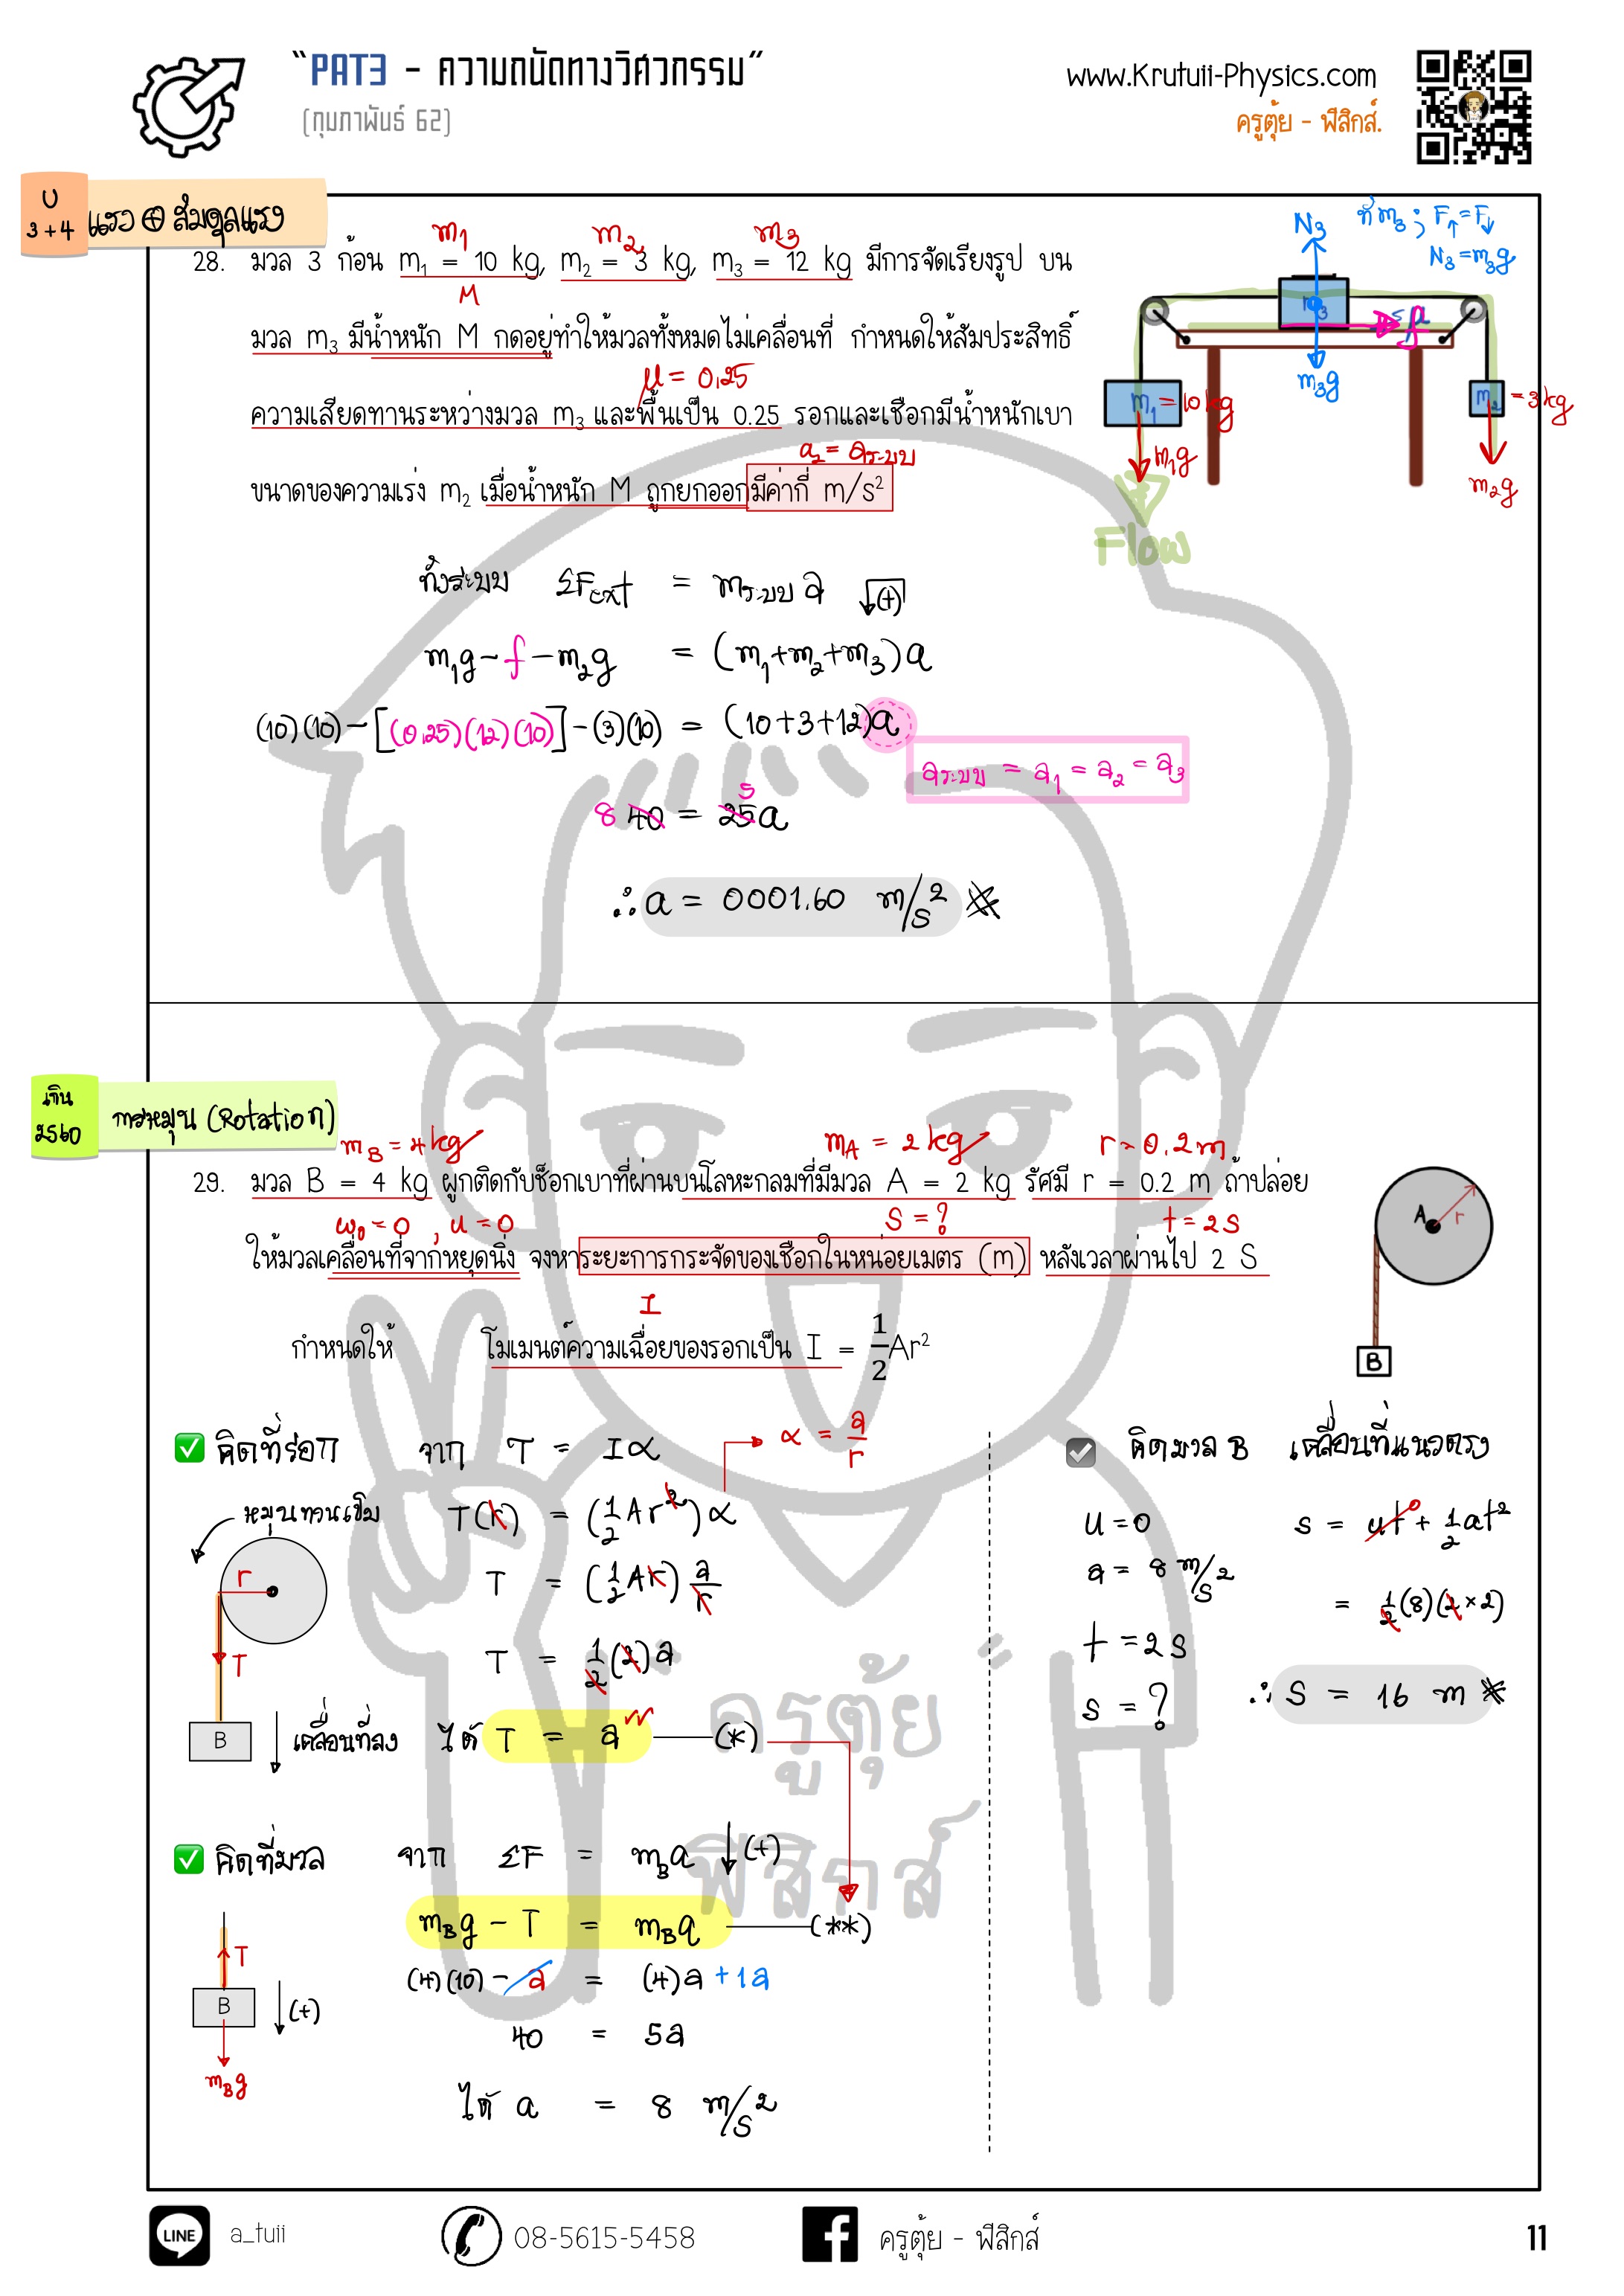 “PAT3 - ความถนัดทางวิศวกรรม”
(กุมภาพันธ์ 62)
www.Krutuii-Physics.com
ครูตุ้ย - ฟิสิกส์.
บ 3+4
แรง ⊕ สมดุลแรง
m₁ m₂ m₃
28. มวล 3 ก้อน m₁ = 10 kg, m₂ = 3 kg, m₃ = 12 kg มีการจัดเรียงรูป บน
M
มวล m₃ มีน้ำหนัก M กดอยู่ทำให้มวลทั้งหมดไม่เคลื่อนที่ กำหนดให้สัมประสิทธิ์
μ = 0.25
ความเสียดทานระหว่างมวล m₃ และพื้นเป็น 0.25 รอกและเชือกมีน้ำหนักเบา
a₂ = aระบบ
ขนาดของความเร่ง m₂ เมื่อน้ำหนัก M ถูกยกออกมีค่ากี่ m/s²
N₃
ที่ m₃ ; F↑ = F↓
N₃ = m₃g
m₃g
m₁ = 10 kg
m₂ = 3 kg
m₁g
m₂g
Flow
ทั้งระบบ ΣFext = mระบบ a ↓(+)
m₁g - f - m₂g = (m₁+m₂+m₃)a
(10)(10) - [(0.25)(12)(10)] - (3)(10) = (10+3+12)a
aระบบ = a₁ = a₂ = a₃
8 40 = 25 5 a
∴ a = 0001.60 m/s² ※
เกิน 2560
การหมุน (Rotation)
m_B = 4 kg m_A = 2 kg r = 0.2 m
29. มวล B = 4 kg ผูกติดกับช็อกเบาที่ผ่านบนโลหะกลมที่มีมวล A = 2 kg รัศมี r = 0.2 m ถ้าปล่อย
ω₀ = 0 , u = 0 S = ? t = 2 s
ให้มวลเคลื่อนที่จากหยุดนิ่ง จงหาระยะการกระจัดของเชือกในหน่อยเมตร (m) หลังเวลาผ่านไป 2 S
I
กำหนดให้ โมเมนต์ความเฉื่อยของรอกเป็น I = 1/2 Ar²
A r
B
คิดที่รอก จาก τ = Iα
α = a/r
หมุนทวนเข็ม
T(r) = (1/2 Ar²)α
r
T = (1/2 Ar) a/r
T
T = 1/2 (2)a
B
เคลื่อนที่ลง
ได้ T = a (*)
คิดที่มวล จาก ΣF = m_Ba ↓(+)
m_Bg - T = m_Ba (**)
T
(4)(10) - a = (4)a + 1a
B (+)
40 = 5a
m_Bg
ได้ a = 8 m/s²
คิดมวล B เคลื่อนที่แนวตรง
u = 0
s = ut 0 + 1/2 at²
a = 8 m/s²
= 1/2 (8)(2×2)
t = 2 s
s = ?
∴ S = 16 m ※
ครูตุ้ย
ฟิสิกส์
LINE a_tuii
08-5615-5458
ครูตุ้ย - ฟิสิกส์
11